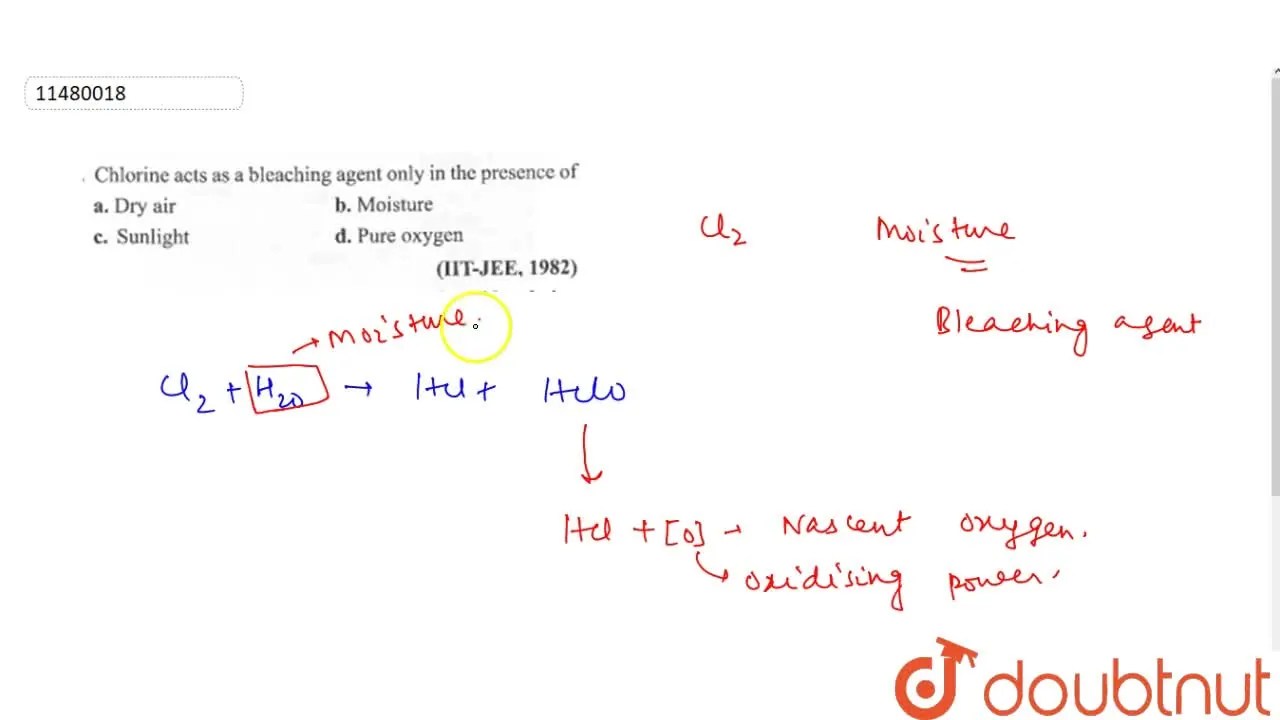 11480018
Chlorine acts as a bleaching agent only in the presence of
a. Dry air b. Moisture
c. Sunlight d. Pure oxygen
(IIT-JEE, 1982)
Cl2 Moisture
Bleaching agent
→ Moisture.
Cl2 + H2O → HCl + HClO
HCl + [O] → Nascent oxygen.
oxidising power.
doubtnut